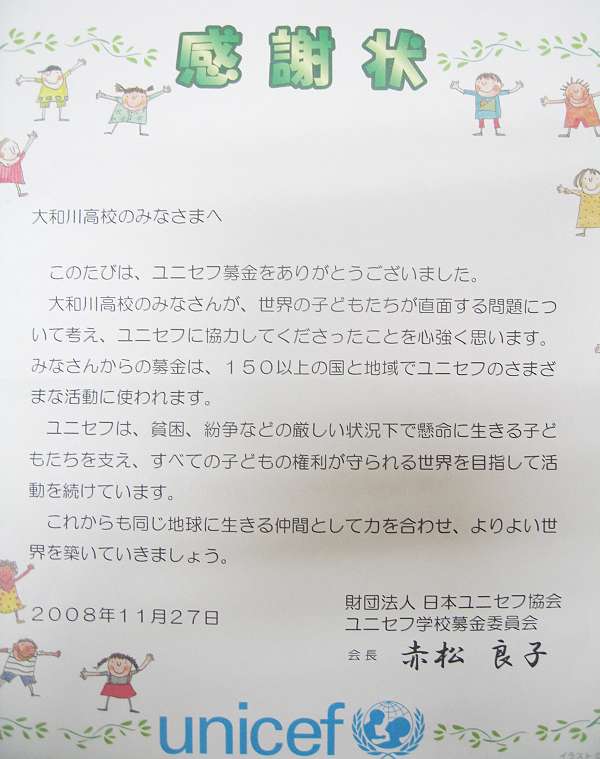 感謝状
大和川高校のみなさまへ
このたびは、ユニセフ募金をありがとうございました。
大和川高校のみなさんが、世界の子どもたちが直面する問題につ
いて考え、ユニセフに協力してくださったことを心強く思います。
みなさんからの募金は、１５０以上の国と地域でユニセフのさまざ
まな活動に使われます。
ユニセフは、貧困、紛争などの厳しい状況下で懸命に生きる子ど
もたちを支え、すべての子どもの権利が守られる世界を目指して活
動を続けています。
これからも同じ地球に生きる仲間として力を合わせ、よりよい世
界を築いていきましょう。
２００８年１１月２７日
財団法人 日本ユニセフ協会
ユニセフ学校募金委員会
会長 赤松 良子
unicef
イラスト